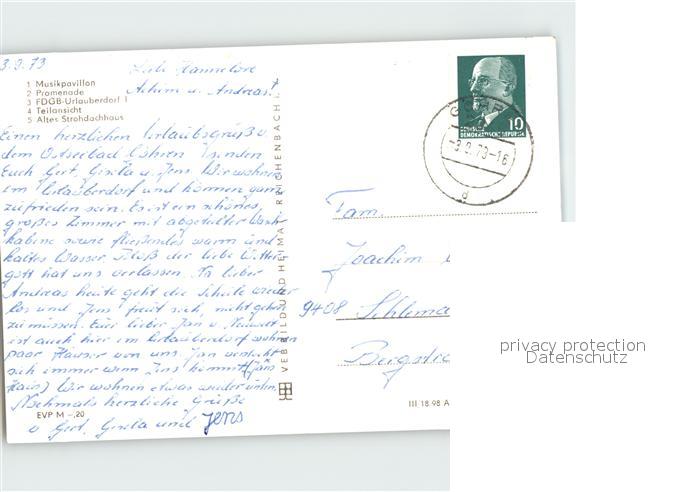 3.9.73
Liebe Hannelore
Achim u. Andreas!
1 Musikpavillon
2 Promenade
3 FDGB-Urlauberdorf I
4 Teilansicht
5 Altes Strohdachhaus
Einen herzlichen Urlaubsgruß v.
dem Ostseebad Göhren senden
Euch Gert, Gisela u. Jens. Wir wohnen
im Urlauberdorf und können ganz
zufrieden sein. Es ist ein schönes,
großes Zimmer mit abgeteilter Wasch-
kabine sowie fließendes warm und
kaltes Wasser. Bloß der liebe Wetter-
gott hat uns verlassen. Na lieber
Andreas heute geht die Schule wieder
los und Jens freut sich, nicht gehen
zu müssen. Euer lieber Jan v.
ist auch hier im Urlauberdorf wohnen
paar Häuser von uns. Jan versteckt
sich immer wenn Jens kommt (Jans
) Wir wohnen etwas weiter unten.
Nochmals herzliche Grüße
v Gert, Gisela und Jens
EVP M -,20
VEB BILD UND HEIMAT REICHENBACH
10
DEUTSCHE
DEMOKRATISCHE REPUBLIK
-3.9.73-16
d
Fam.
Joachim
9408 Schlema
Bergstr
III 18 98 A
privacy protection
Datenschutz